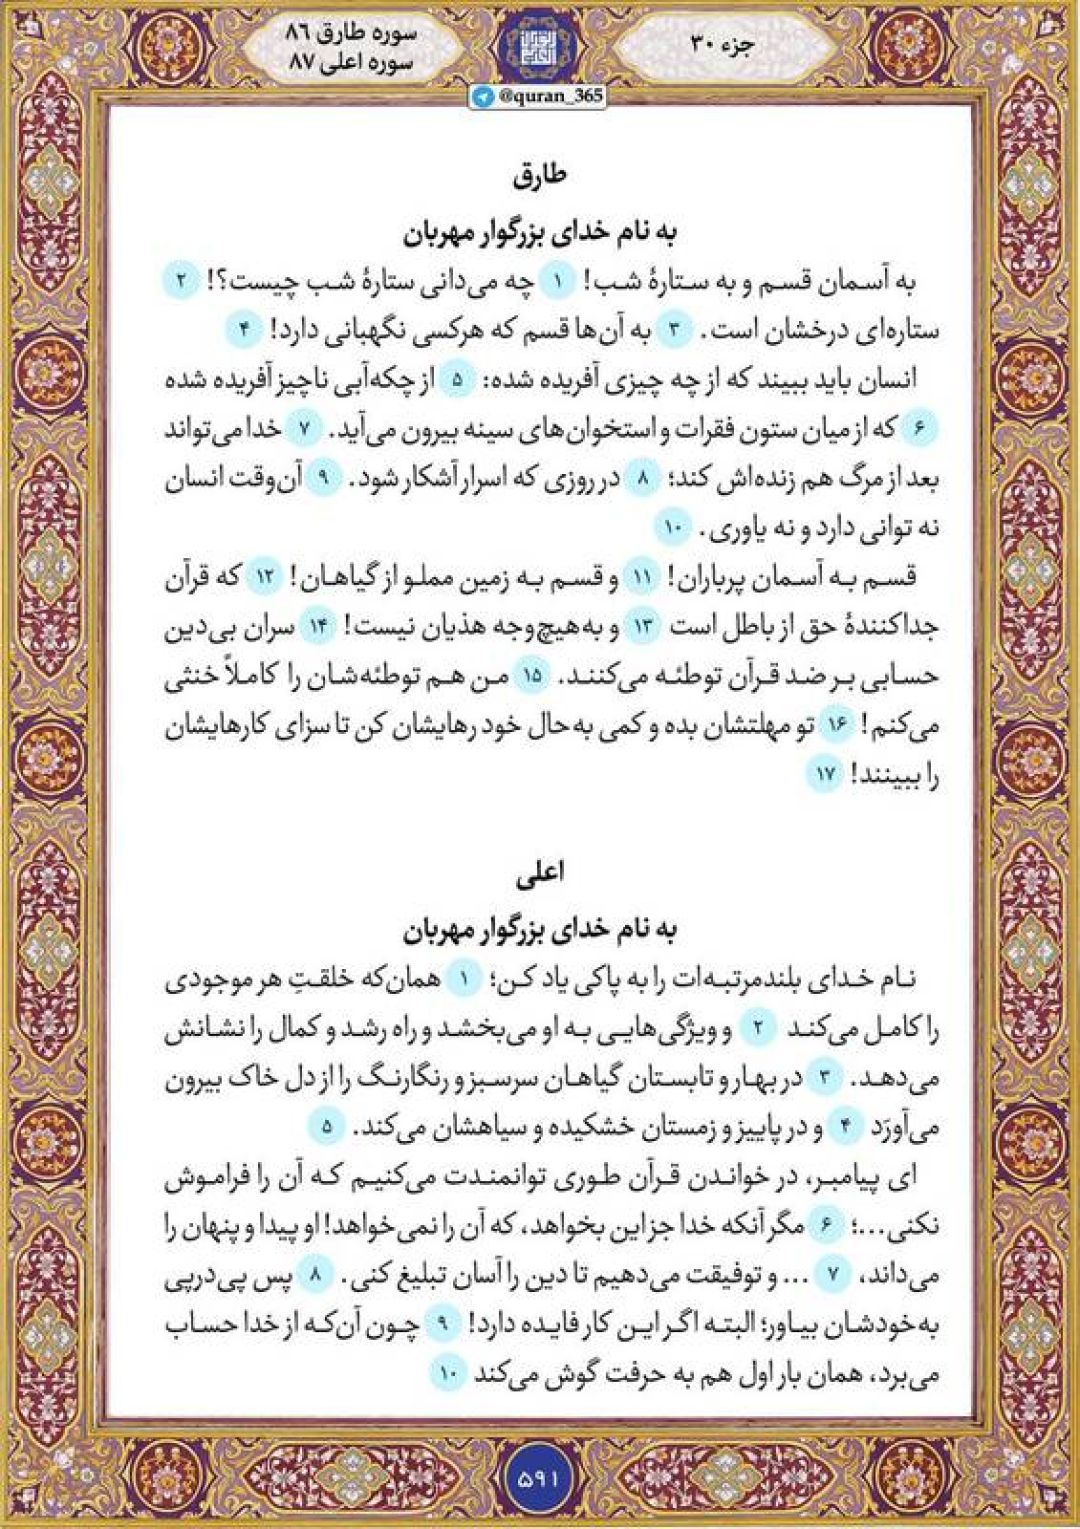 جزء ۳۰
سوره طارق ۸۶
سوره اعلی ۸۷
@quran_365
طارق
به نام خدای بزرگوار مهربان
به آسمان قسم و به ستارهٔ شب! ۱ چه می‌دانی ستارهٔ شب چیست؟! ۲
ستاره‌ای درخشان است. ۳ به آن‌ها قسم که هرکسی نگهبانی دارد! ۴
انسان باید ببیند که از چه چیزی آفریده شده: ۵ از چکه‌آبی ناچیز آفریده شده
۶ که از میان ستون فقرات و استخوان‌های سینه بیرون می‌آید. ۷ خدا می‌تواند
بعد از مرگ هم زنده‌اش کند؛ ۸ در روزی که اسرار آشکار شود. ۹ آن‌وقت انسان
نه توانی دارد و نه یاوری. ۱۰
قسم به آسمان پرباران! ۱۱ و قسم به زمین مملو از گیاهان! ۱۲ که قرآن
جداکنندهٔ حق از باطل است ۱۳ و به‌هیچ‌وجه هذیان نیست! ۱۴ سران بی‌دین
حسابی بر ضد قرآن توطئه می‌کنند. ۱۵ من هم توطئه‌شان را کاملاً خنثی
می‌کنم! ۱۶ تو مهلتشان بده و کمی به‌حال خود رهایشان کن تا سزای کارهایشان
را ببینند! ۱۷
اعلی
به نام خدای بزرگوار مهربان
نام خدای بلندمرتبه‌ات را به پاکی یاد کن؛ ۱ همان‌که خلقتِ هر موجودی
را کامل می‌کند ۲ و ویژگی‌هایی به او می‌بخشد و راه رشد و کمال را نشانش
می‌دهد. ۳ در بهار و تابستان گیاهان سرسبز و رنگارنگ را از دل خاک بیرون
می‌آورَد ۴ و در پاییز و زمستان خشکیده و سیاهشان می‌کند. ۵
ای پیامبر، در خواندن قرآن طوری توانمندت می‌کنیم که آن را فراموش
نکنی...؛ ۶ مگر آنکه خدا جز این بخواهد، که آن را نمی‌خواهد! او پیدا و پنهان را
می‌داند، ۷ ... و توفیقت می‌دهیم تا دین را آسان تبلیغ کنی. ۸ پس پی‌درپی
به‌خودشان بیاور؛ البته اگر این کار فایده دارد! ۹ چون آن‌که از خدا حساب
می‌برد، همان بار اول هم به حرفت گوش می‌کند ۱۰
۵۹۱